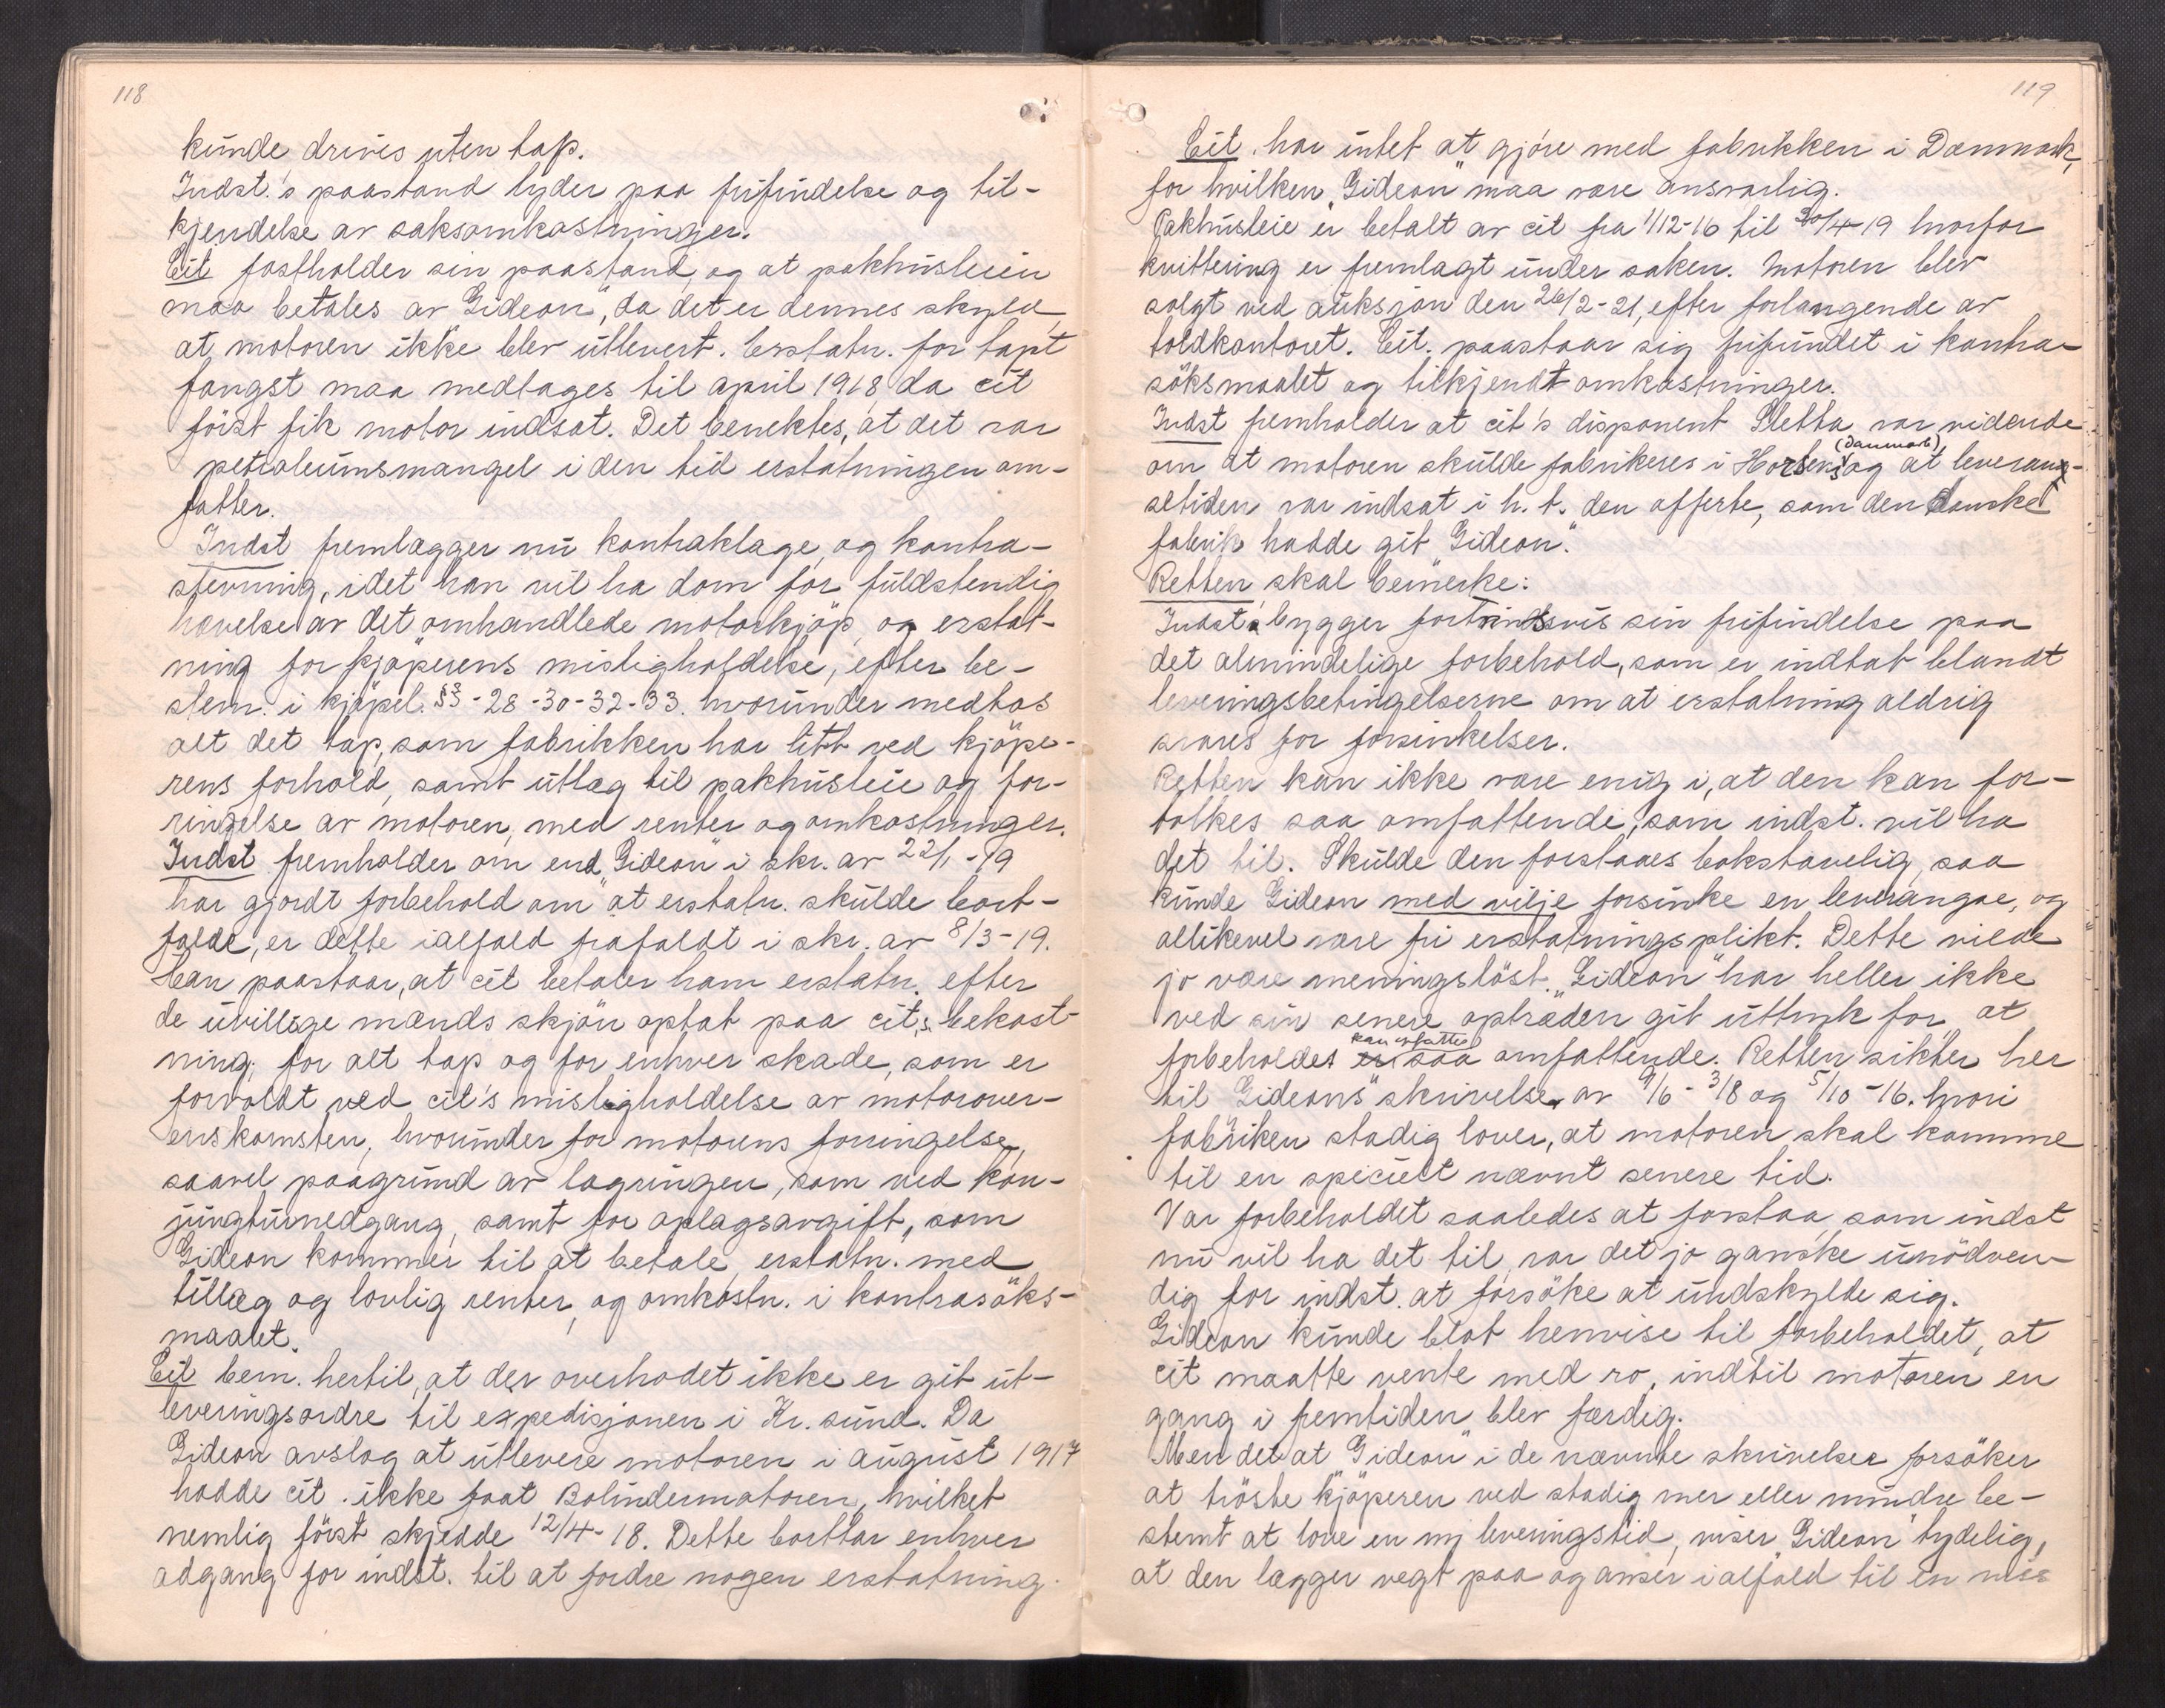 118
kunde drives uten tap.
Indst.'s paastand lyder paa frifindelse og til-
kjendelse av saksomkostninger.
Cit fastholder sin paastand, og at pakhusleien
maa betales av "Gideon", da det er dennes skyld,
at motoren ikke blev utlevert. Erstatn. for tapt
fangst maa medtages til april 1918 da cit
först fik motor indsat. Det benektes, at det var
petroleumsmangel i den tid erstatningen om-
fatter.
Indst fremlægger nu kontraklage, og kontra-
stevning, idet han vil ha dom for fuldstendig
hævelse av det omhandlede motorkjöp, og erstat-
ning for kjöperens misligholdelse, efter be-
stem. i kjöpsl. §§ - 28 - 30 - 32 - 33. hvorunder medtas
alt det tap, som fabrikken har litt ved kjöpe-
rens forhold, samt utlæg til pakhusleie og for-
ringelse av motoren, med renter og omkostninger.
Indst fremholder om end "Gideon" i skr. av 22/1 - 19
har gjordt forbehold om at erstatn. skulde bort-
falde, er dette ialfald frafaldt i skr. av 8/3 - 19.
Han paastaar, at cit betaler ham erstatn. efter
de uvillige mænds skjön optat paa cit,s bekost-
ning, for alt tap og for enhver skade, som er
forvoldt ved cit's misligholdelse av motorover-
enskomsten, hvorunder for motorens forringelse,
saavel paagrund av lagringen, som ved kon-
jungturnedgang, samt for oplagsavgift, som
Gideon kommer til at betale, erstatn. med
tillæg og lovlig renter, og omkostn. i kontrasöks-
maalet.
Cit bem. hertil, at der overhodet ikke er git ut-
leveringsordre til expedisjonen i Kr. sund. Da
Gideon avslog at utlevere motoren i august 1917
hadde cit. ikke faat Bolindermotoren, hvilket
nemlig först skjedde 12/4 - 18. Dette borttar enhver
adgang for indst. til at fordre nogen erstatning.
119
Cit. har intet at gjöre med fabrikken i Danmark,
for hvilken "Gideon" maa være ansvarlig.
Pakhusleie er betalt av cit fra 1/12 - 16 til 30/4 - 19 hvorfor
kvittering er fremlagt under saken. Motoren blev
solgt ved auksjon den 26/2 - 21, efter forlangende av
toldkontoret. Cit. paastaar sig frifundet i kontra-
söksmaalet og tilkjendt omkostninger.
Indst fremholder at cit's disponent Sletta var vidende
om at motoren skulde fabrikeres i Horsens (Danmark), og at leveran-
setiden var indsat i h. t. den offerte, som den danske
fabrik hadde git "Gideon".
Retten skal bemerke:
Indst. bygger fortrindsvis sin frifindelse paa
det almindelige forbehold, som er indtat blandt
leveringsbetingelserne om at erstatning aldrig
svares for forsinkelser.
Retten kan ikke være enig i, at den kan for-
tolkes saa omfattende, som indst. vil ha
det til. Skulde den forstaaes bokstavelig, saa
kunde Gideon med vilje forsinke en leverangse, og
allikevel være fri erstatningsplikt. Dette vilde
jo være meningslöst. "Gideon" har heller ikke
ved sin senere optræden git uttryk for, at
forbeholdet er kan opfattes saa omfattende. Retten sikter her
til "Gideons" skrivelser av 9/6 - 3/8 og 5/10 - 16. hvori
fabriken stadig lover, at motoren skal komme
til en specielt nævnt senere tid.
Var forbeholdet saaledes at forstaa, som indst
nu vil ha det til, var det jo ganske unödven-
dig for indst. at forsöke at undskylde sig.
Gideon kunde blot henvise til forbeholdet, at
cit maatte vente med ro, indtil motoren en
gang i fremtiden blev færdig.
Men det at "Gideon" i de nævnte skrivelser forsöker
at tröste kjöperen ved stadig mer eller mindre be-
stemt at love en ny leveringstid, viser "Gideon" tydelig,
at den lægger vegt paa og anser ialfald til en viss